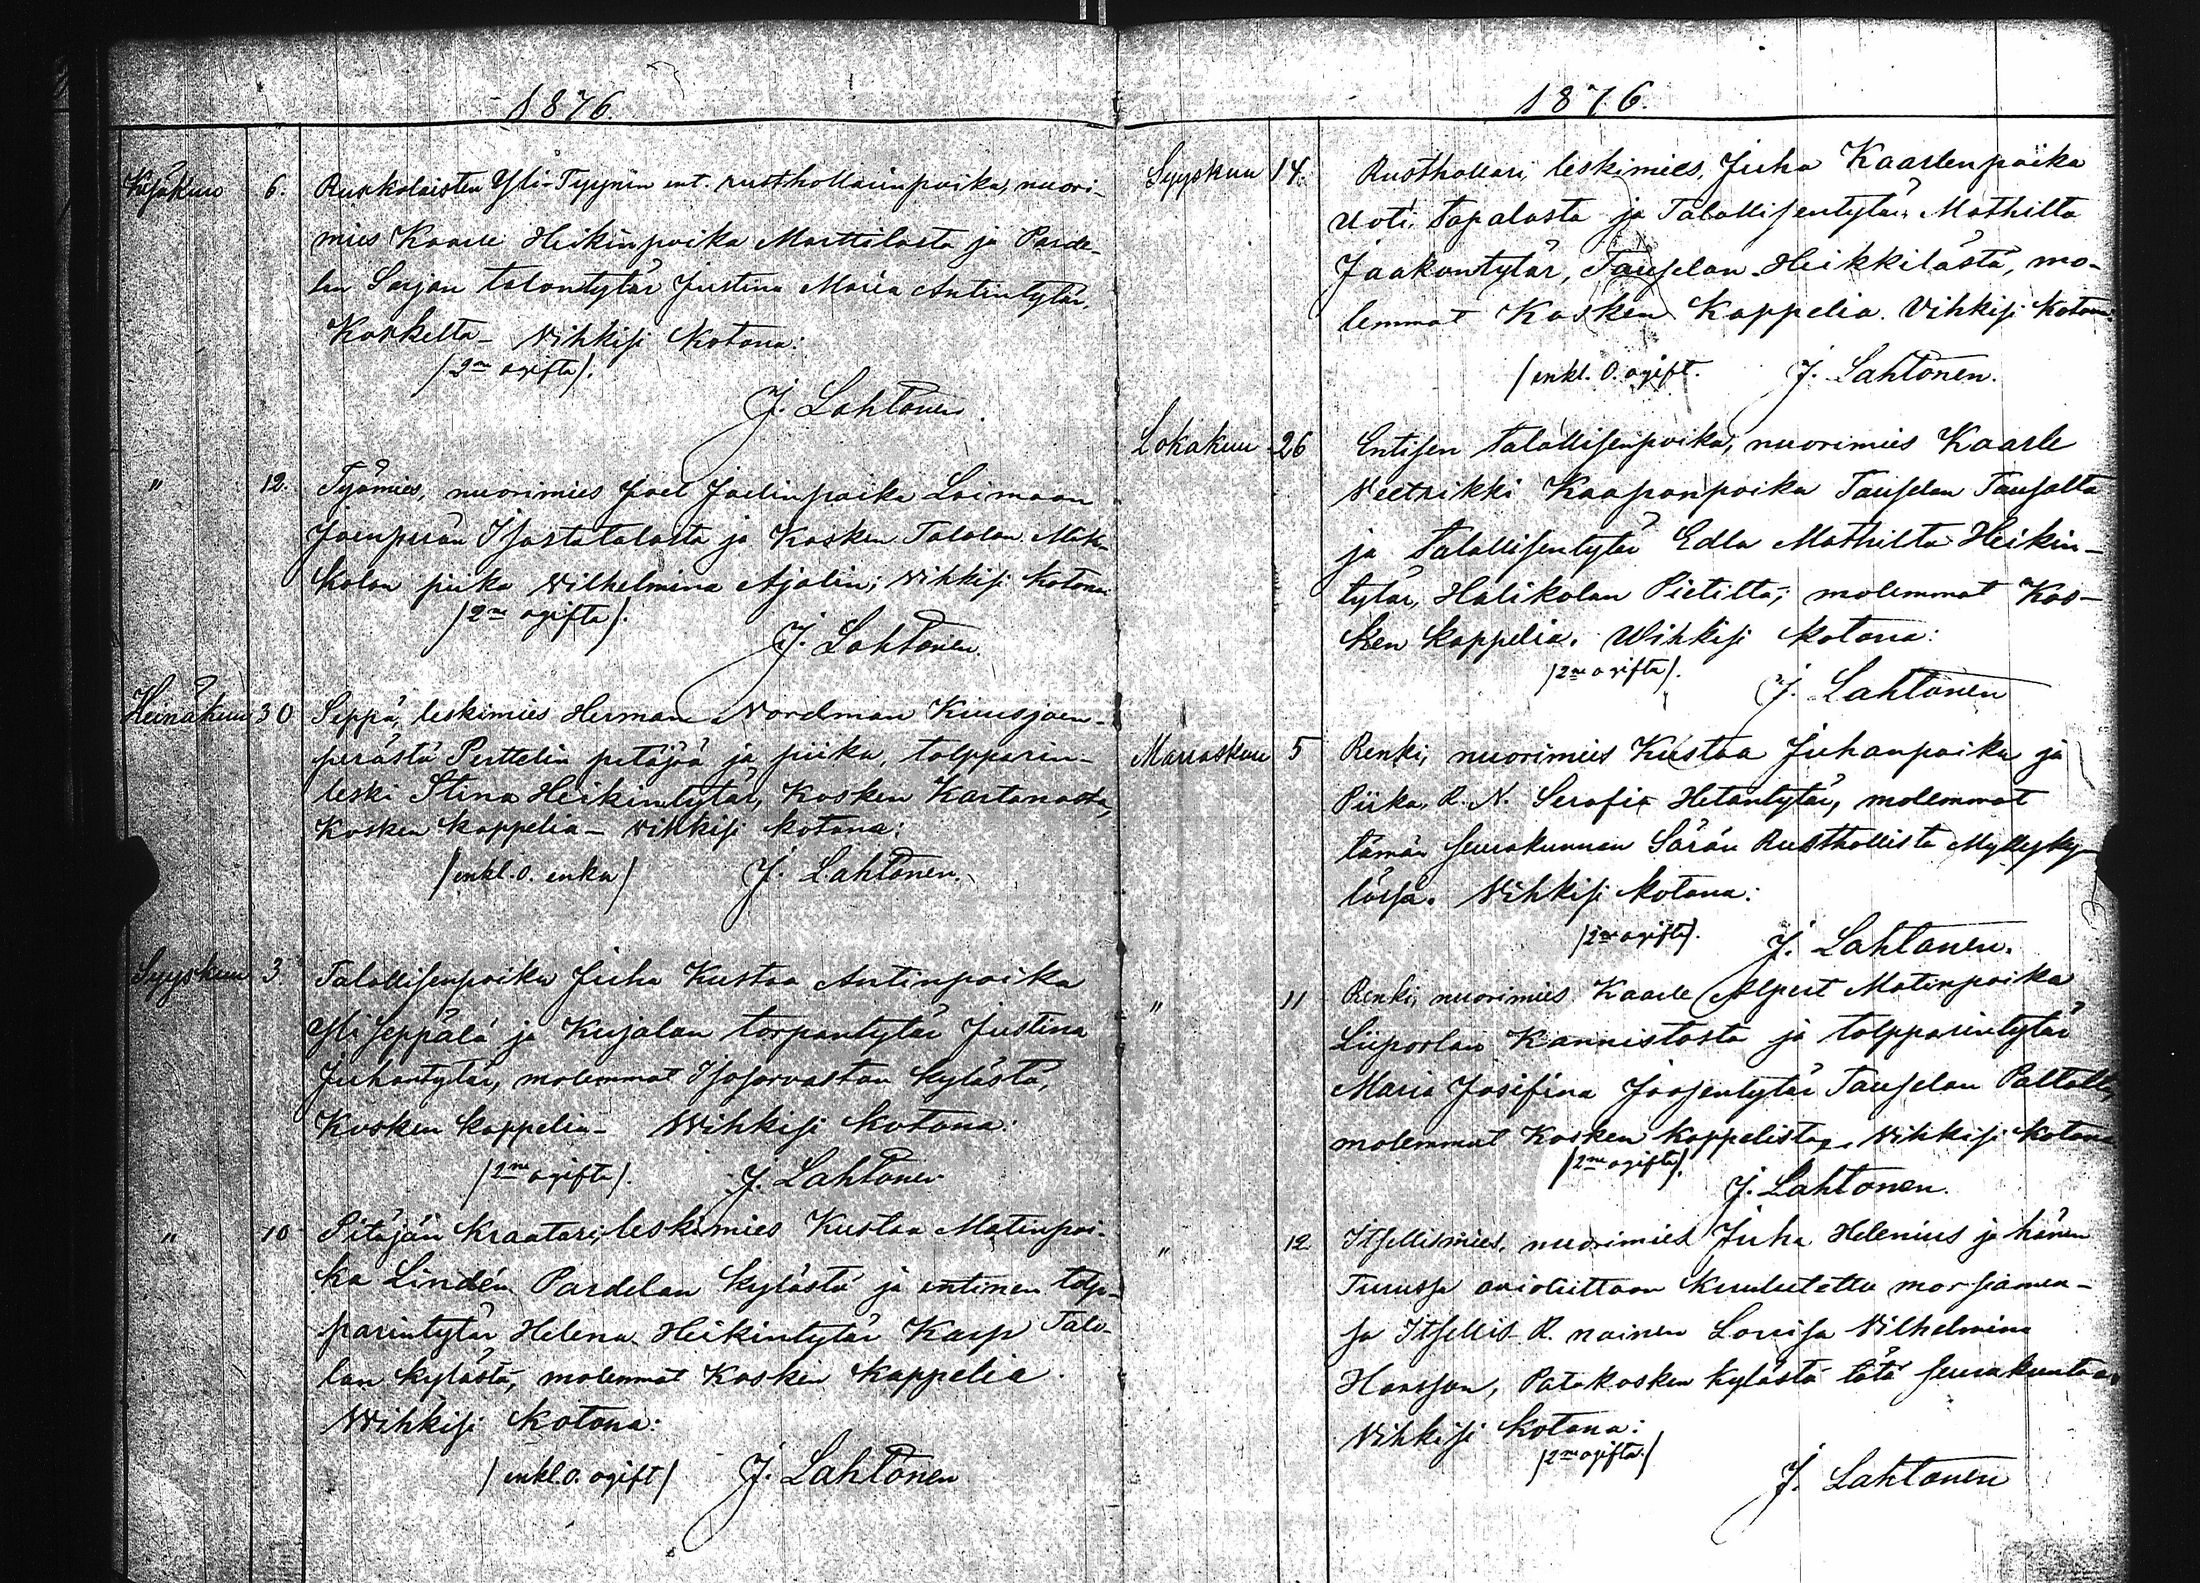 1876.
Kesäkuu 6. Ruskolaisten Yli-Tyynin ent. rusthollarinpoika, nuori-
mies Kaarle Heikinpoika Marttilasta ja Parde-
lan Sarjan talontytär Justina Maria Antintytär,
Koskelta – Vihkisi Kotona:
/2ne ogifta/.
J. Lahtonen.
" 12. Työmies, nuorimies Joel Joelinpoika Loimaan
Joenperän Isostatalosta ja Kosken Talolan
kolan piika Wilhelmina Ajalin; Vihkisi Kotona
/2ne ogifta/.
J. Lahtonen.
Heinäkuu 30 Seppä, leskimies Herman Nordman Kuusjoen-
perästä Perttelin pitäjää ja piika, tolpparin-
leski Stina Heikintytär, Kosken Kartanosta,
Kosken kappelia – Vihkisi kotona:
/enkl. o. enka/ J. Lahtonen.
Syyskuu 3. Talollisenpoika Juha Kustaa Antinpoika
Yliseppälä ja Kujalan torpantytär Justina
Juhantytär, molemmat Isosorvastan kylästä,
Kosken kappelia – Wihkisi Kotona:
/2ne ogifta/. J. Lahtonen
" 10 Pitäjän Kraatari, leskimies Kustaa Matinpoi-
ka Lindén Pardelan kylästä ja entinen tolp-
parintytär Helena Heikintytär Karp Talo-
lan kylästä, molemmat Kosken Kappelia.
Wihkisi Kotona:
/enkl. o. ogift/ J. Lahtonen
1876.
Syyskuu 14. Rusthollari, leskimies, Juha Kaarlenpoika
Uoti, Tapalasta ja Talollisentytär, Mathilta
Jaakontytär, Tauselan Heikkilästä, mo-
lemmat Kosken Kappelia. Vihkisi Kotona:
/enkl. o. ogift. J. Lahtonen.
Lokakuu 26 Entisen talollisenpoika, nuorimies Kaarle
Veetrikki Kaaponpoika Tauselan Tausalta
ja talollisentytär Edla Mathilta Heikin-
tytär, Halikolan Pietilta; molemmat Kos-
ken kappelia. Wihkisi kotona:
/2ne ogifta/.
J. Lahtonen
Marraskuu 5 Renki, nuorimies Kustaa Juhanpoika ja
Piika, R. N. Serafia Hetantytär, molemmat
tämän seurakunnan Särän Rusthollista Myllyky-
lässä. Vihkisi kotona:
/2ne ogifta/.
J. Lahtonen.
" 11 Renki, nuorimies Kaarle Alpert Matinpoika
Liiporlan Kannistosta ja tolpparintytär
Maria Josifina Joosentytär Tauselan Paltalta,
molemmat Kosken kappelista. Vihkisi kotona
/2ne ogifta/.
J. Lahtonen.
" 12 Itsellismies, nuorimies Juha Helenius ja hänen
Turussa avioliittoon kuulutettu morsiamen-
sa Itsellis R. nainen Lovisa Vilhelmina
Hansson, Patakosken kylästä tätä seurakuntaa
Vihkisi kotona:
/2ne ogifta/
J. Lahtonen